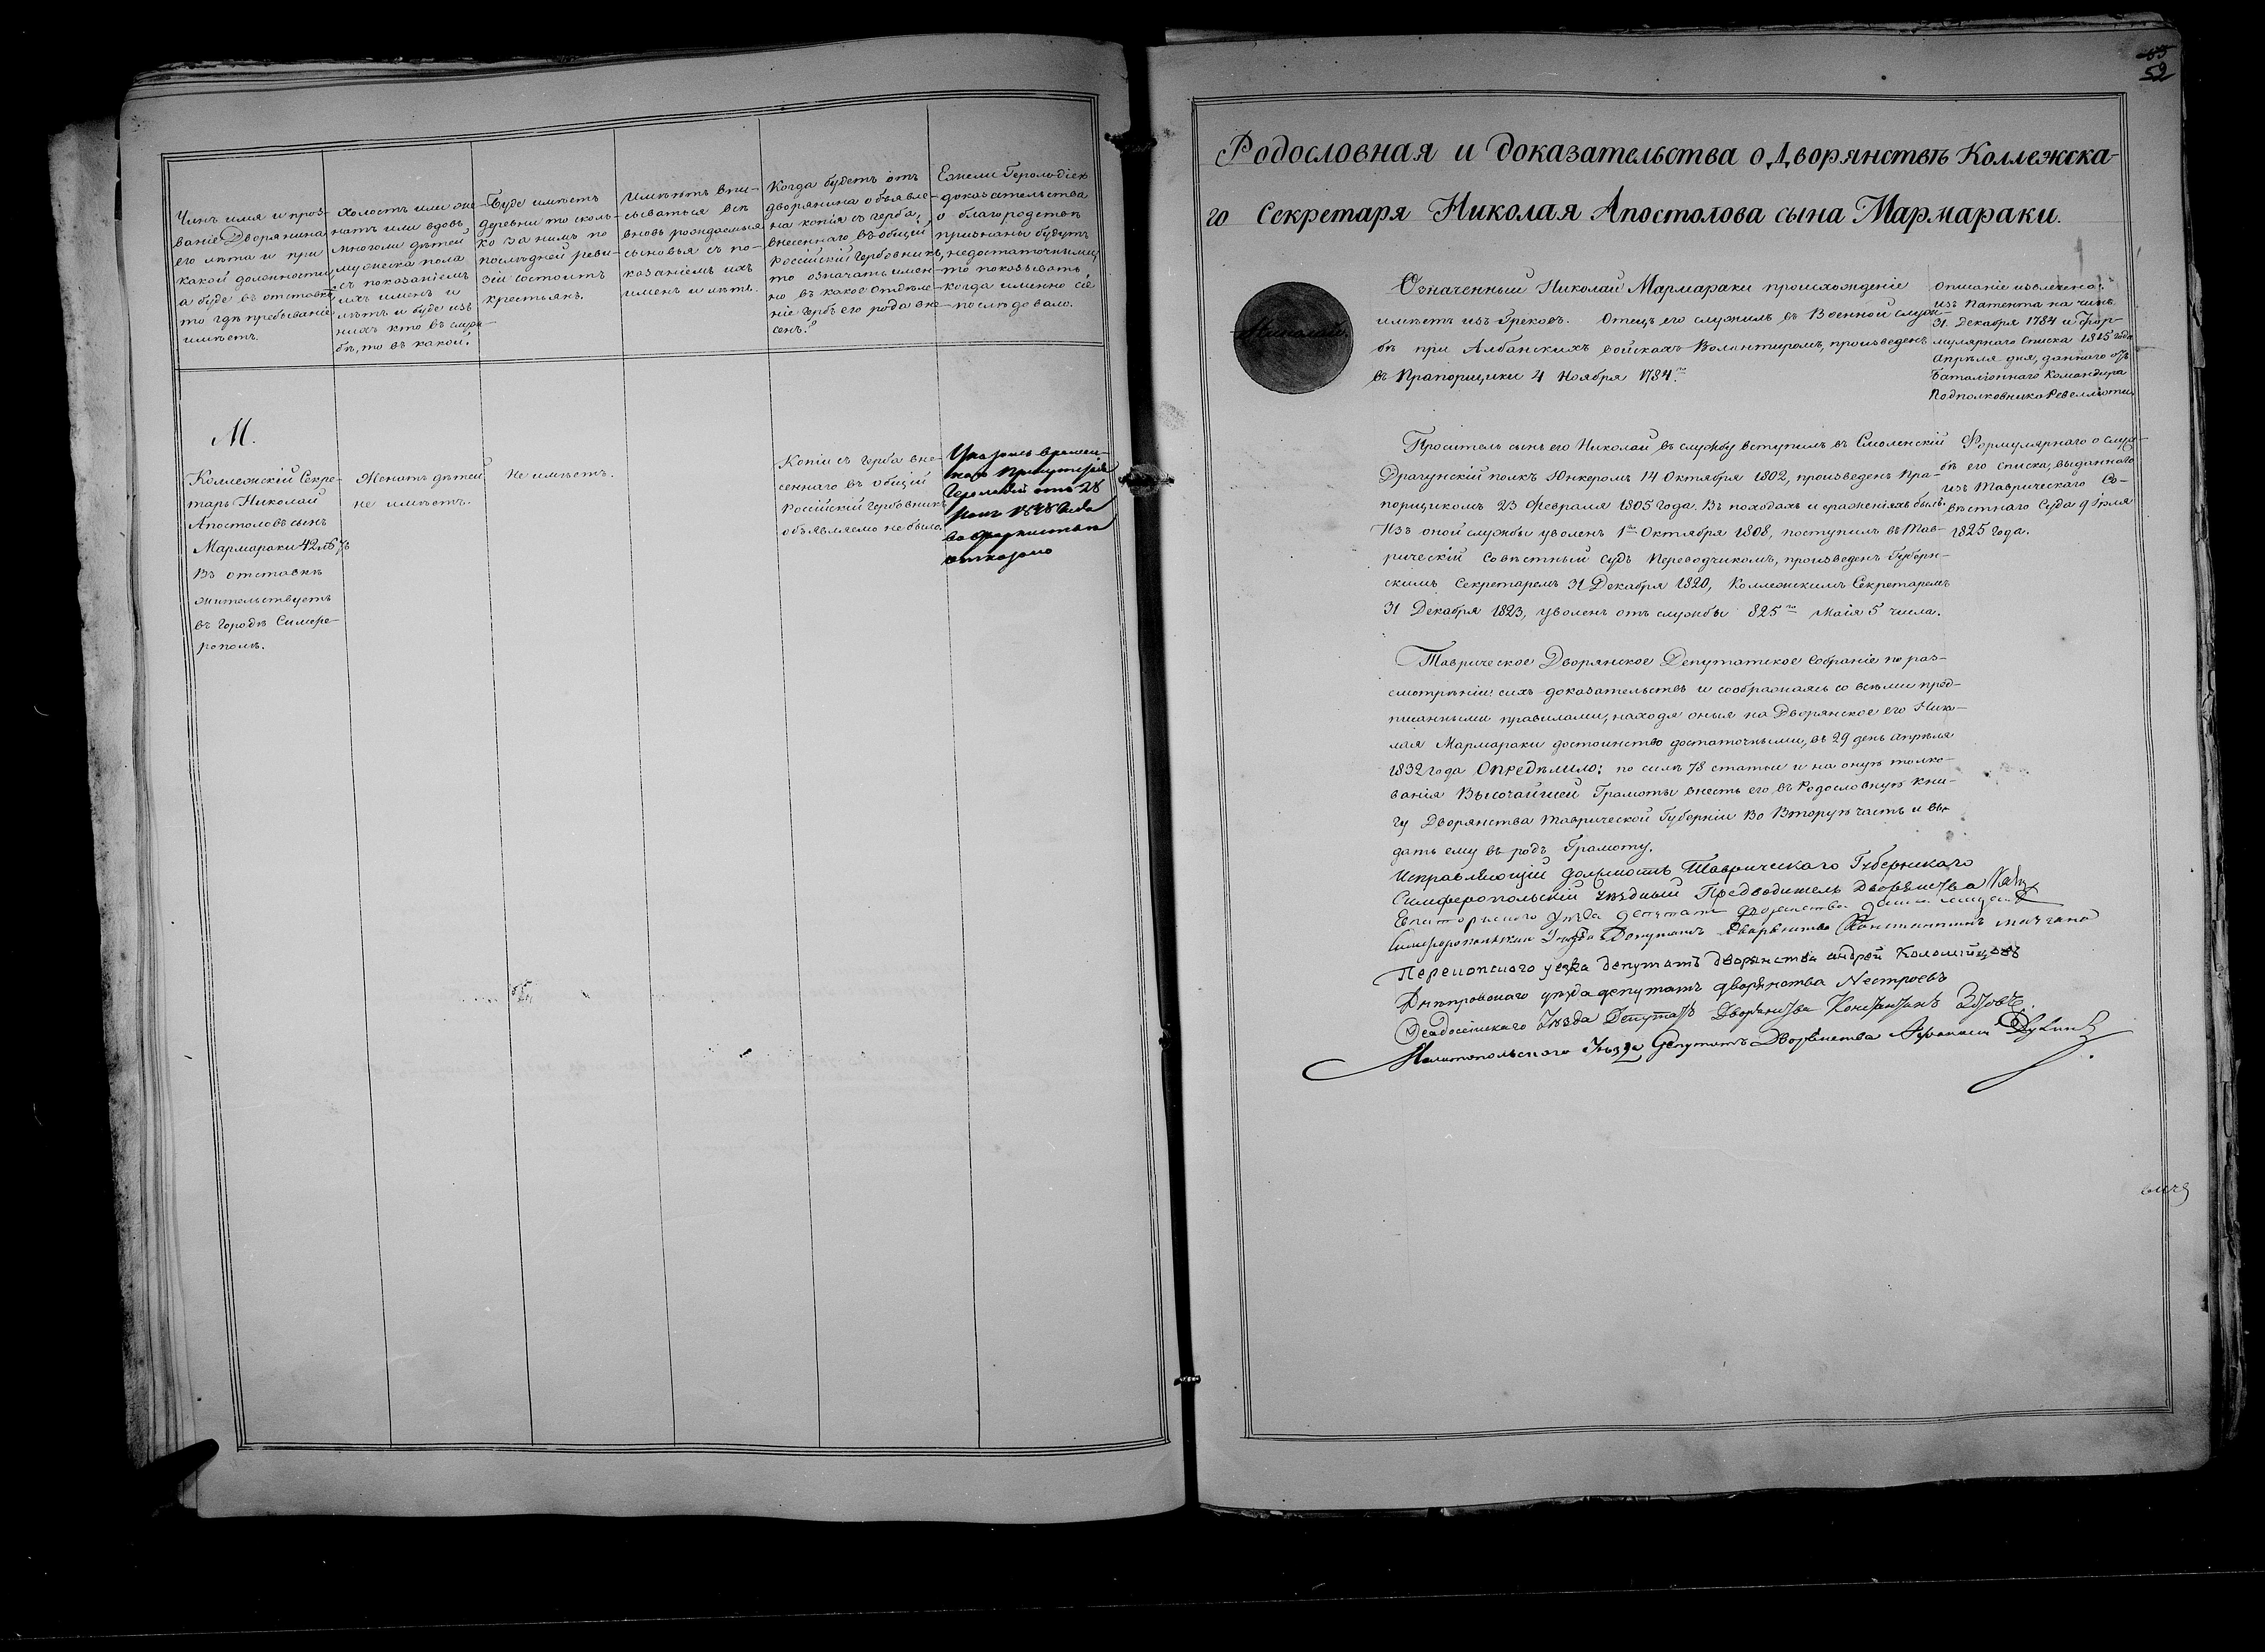 Чинъ имя и проз-
ваніе Дворянина
его лѣта и при
какой должности,
а буде въ отставкѣ
то гдѣ пребываніе
имѣетъ.
Холостъ или же-
натъ или вдовъ
многоли дѣтей
мужеска пола
съ показаніемъ
ихъ именъ и
лѣтъ и буде изъ
нихъ кто въ служ-
бѣ, то въ какой.
Буде имѣетъ
деревни то сколь-
ко за нимъ по
послѣдней реви-
зіи состоитъ
крестьянъ.
Имѣютъ впи-
сываться всѣ
вновь рождаемыя
сыновья съ по-
казаніемъ ихъ
именъ и лѣтъ.
Когда будетъ отъ
дворянина объявле-
на копія съ герба,
внесеннаго въ общій
Россійскій Гербовникъ,
то означать имен-
но въ какое отдѣле-
ніе гербъ его рода вне-
сенъ?
Ежели Герольдіею
доказательства
о благородствѣ
признаны будутъ
недостаточными,
то показывать,
когда именно сіе
послѣдовало.
М.
Коллежскій Секре-
тарь Николай
Апостоловъ сынъ
Мармараки 42 лѣтъ
Въ отставкѣ
жительствуетъ
въ городѣ Симфе-
рополѣ.
Женатъ дѣтей
не имѣетъ.
Не имѣетъ.
Копіи съ герба вне-
сеннаго въ общій
Россійскій Гербовникъ
объявляемо не было.
Указомъ Времен-
наго Присутствія
Герольдіи отъ 28
1848 года
въ дворянствѣ
отказано
52
Родословная и доказательства о Дворянствѣ Коллежска-
го Секретаря Николая Апостолова сына Мармараки.
Николай
Означенный Николай Мармараки происхожденіе
имѣетъ изъ Грековъ. Отецъ его служилъ въ Военной служ-
бѣ при Албанскихъ войскахъ Волонтиромъ, произведенъ
въ Прапорщики 4 Ноября 1784.го
Описаніе извлечено:
изъ Патента на чинъ
31. Декабря 1784 и Фор-
мулярнаго Списка 1825 года
Апрѣля дня, даннаго отъ
Баталіоннаго Командира
Подполковника Ревеліоти.
Проситель сынъ его Николай въ службу вступилъ въ Смоленскій
Драгунскій полкъ Юнкеромъ 14 Октября 1802, произведенъ Пра-
порщикомъ 23 Февраля 1805 года. Въ походахъ и сраженіяхъ былъ.
Изъ оной службы уволенъ 1го Октября 1808, поступилъ въ Тав-
рическій Совѣстный Судъ Переводчикомъ, произведенъ Губерн-
скимъ Секретаремъ 31 Декабря 1820, Коллежскимъ Секретаремъ
31 Декабря 1823, уволенъ отъ службы 825го Маія 5 числа.
Формулярнаго о служ-
бѣ его списка, выданнаго
изъ Таврическаго Со-
вѣстнаго Суда
1825 года.
Таврическое Дворянское Депутатское Собраніе по раз-
смотрѣніи сихъ доказательствъ и соображаясь со всѣми пред-
писанными правилами, находя оныя на Дворянское его Нико-
лая Мармараки достоинство достаточными, въ 29 день Апрѣля
1832 года Опредѣлило: по силѣ 78 статьи и на онуѣ толко-
ванія Высочайшей Грамоты внесть его въ Родословнуѣ Кни-
гу Дворянства Таврической Губерніи Во Вторуѣ часть и вы-
дать ему въ родъ Грамоту.
Исправляющій должность Таврическаго Губернскаго
Симферопольскій Уѣздный Предводитель Дворянства
Евпаторійскаго Уѣзда Депутатъ дворянства
Симферопольскаго Уѣзда Депутатъ Дворянства Константинъ
Перекопского уезда депутатъ дворянства андрей Коломійцовъ
Днѣпровскаго уѣзда депутатъ дворянства Нестроевъ
Феодосійскаго Уѣзда Депутатъ Дворянства Константинъ Зотовъ.
Мелитопольского Уѣзда Депутатъ Дворянства